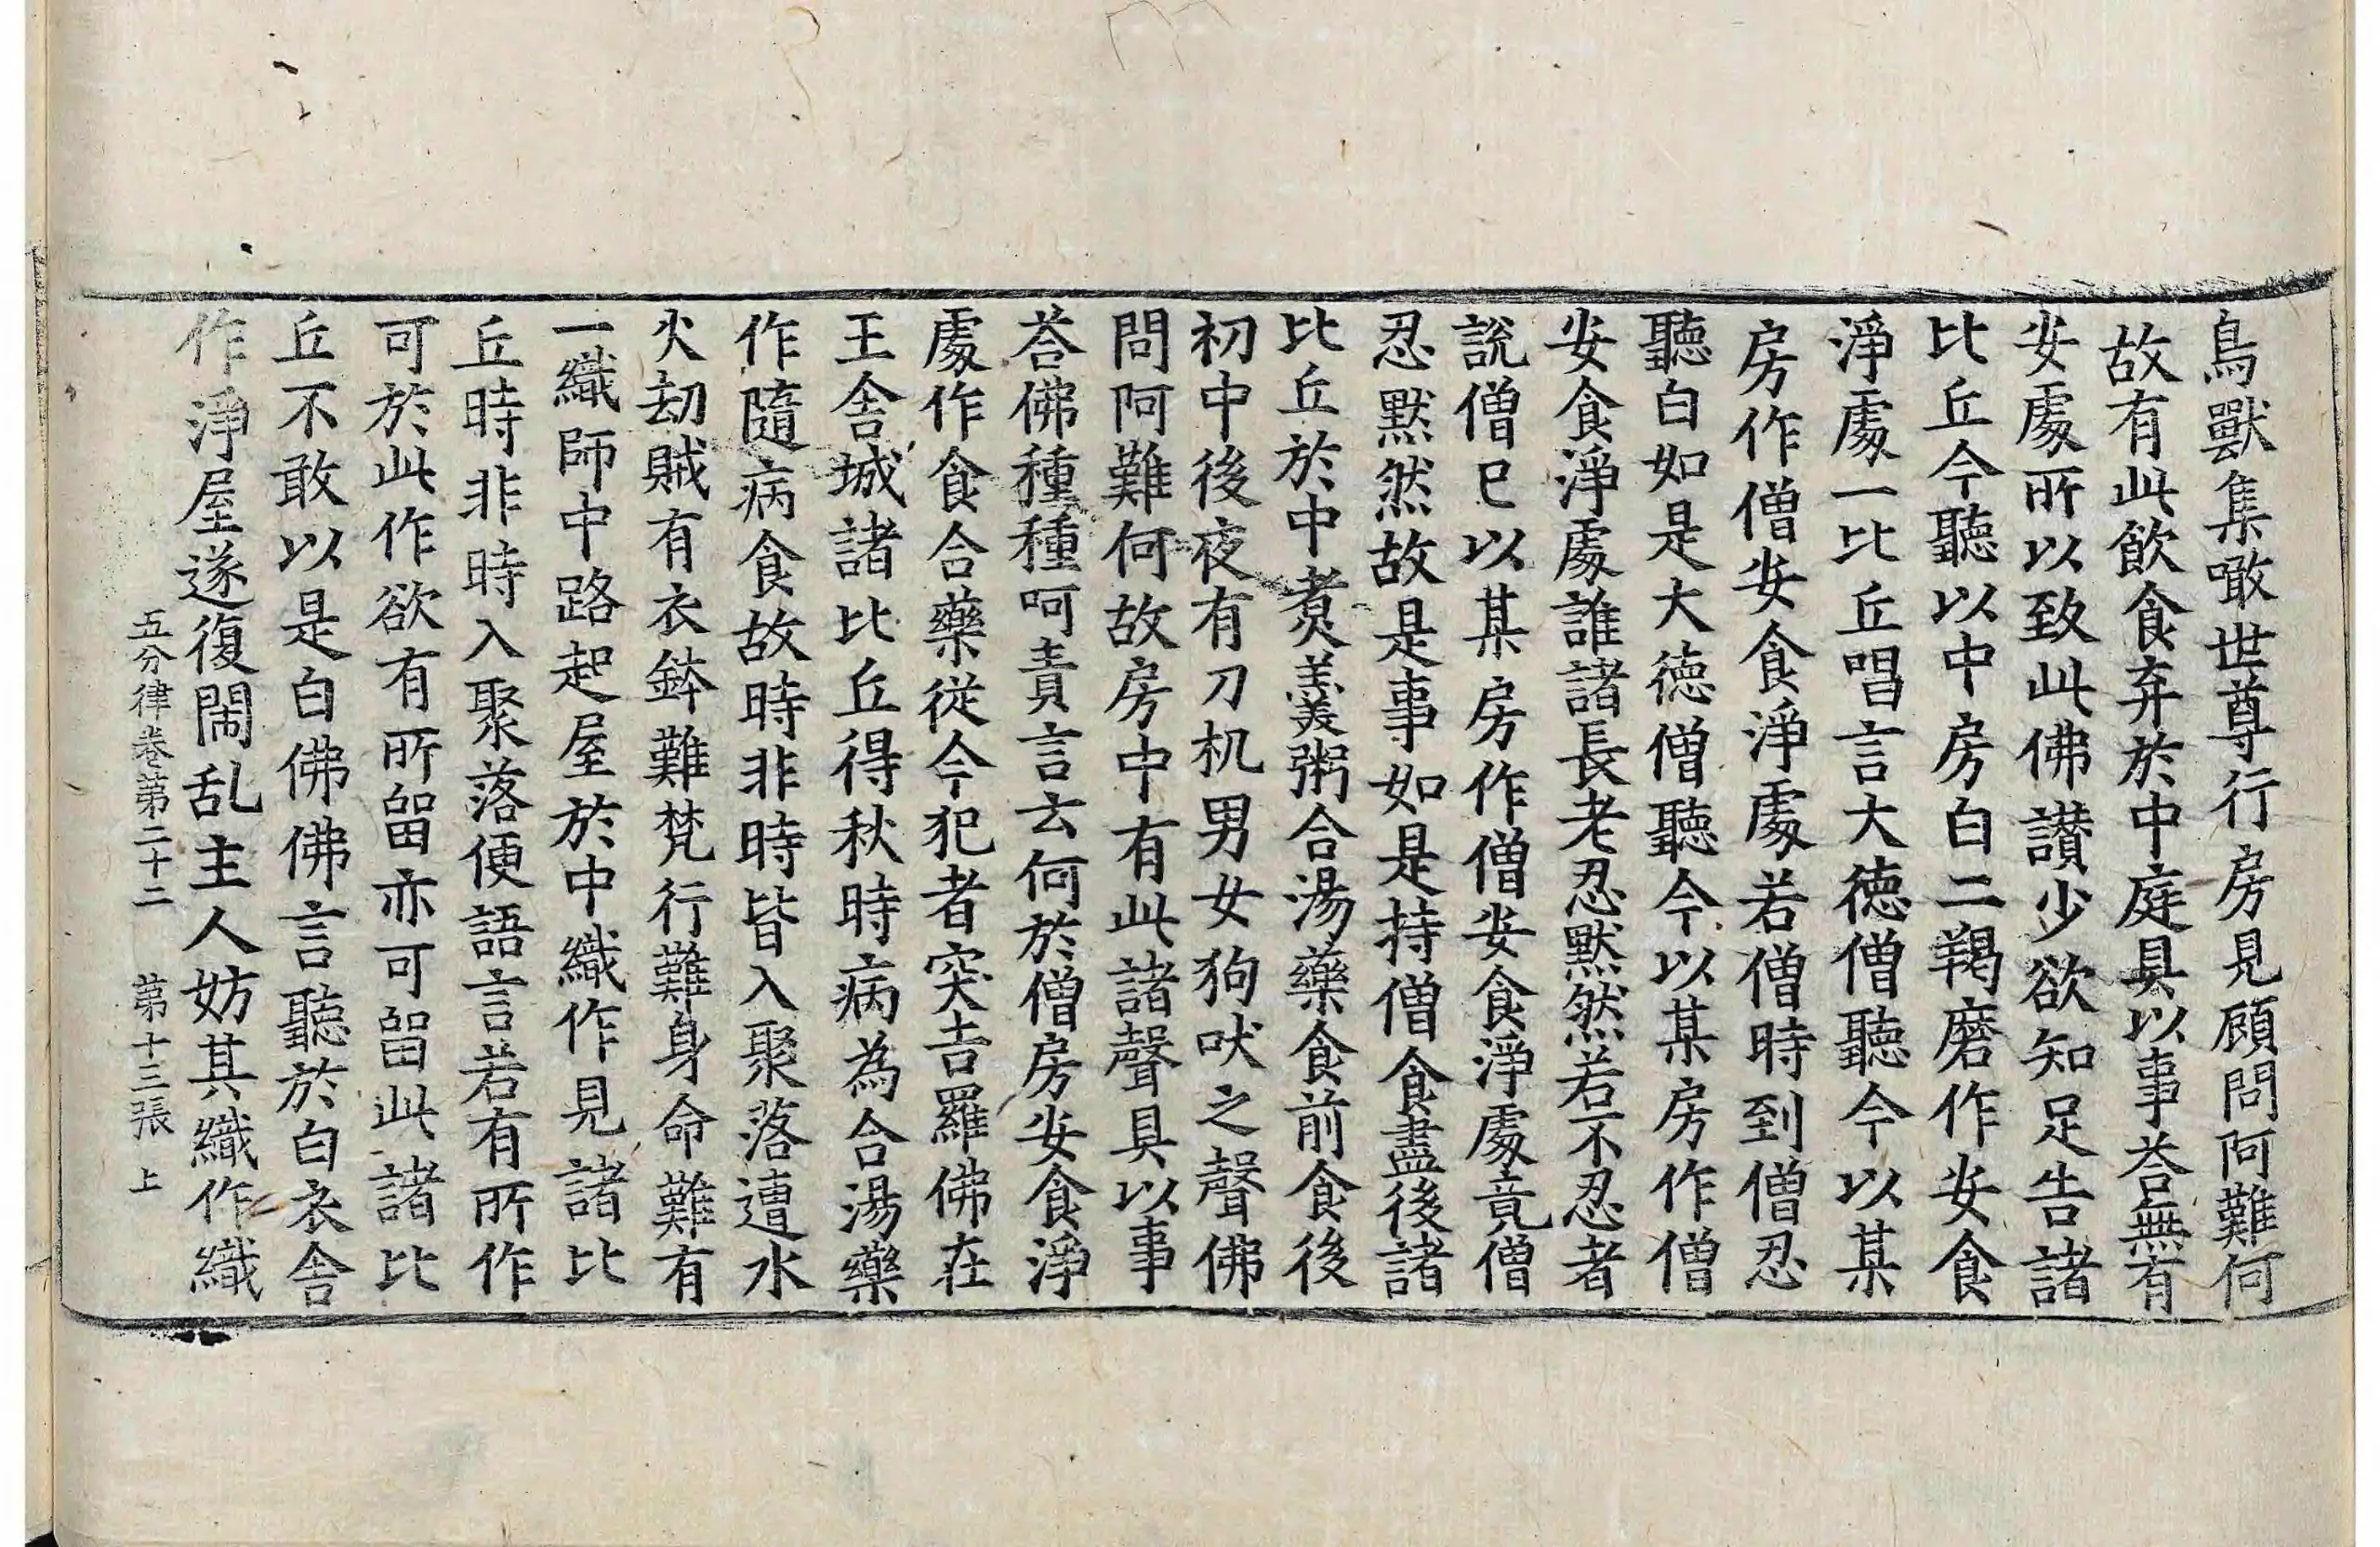 鳥獸集噉世尊行房見顧問阿難何
故有此飲食弃於中庭具以事荅無有
安處所以致此佛讃少欲知足告諸
比丘今聽以中房白二羯磨作安食
淨處一比丘唱言大德僧聽今以某
房作僧安食淨處若僧時到僧忍
聽白如是大德僧聽今以某房作僧
安食淨處誰諸長老忍默然若不忍者
說僧已以某房作僧安食淨處竟僧
忍默然故是事如是持僧食盡後諸
比丘於中煑羹粥合湯藥食前食後
初中後夜有刀机男女狗吠之聲佛
問阿難何故房中有此諸聲具以事
荅佛種種呵責言云何於僧房安食淨
處作食合藥從今犯者突吉羅佛在
王舍城諸比丘得秋時病為合湯藥
作隨病食故時非時皆入聚落遭水
火劫賊有衣鉢難梵行難身命難有
一織師中路起屋於中織作見諸比
丘時非時入聚落便語言若有所作
可於此作欲有所留亦可留此諸比
丘不敢以是白佛佛言聽於白衣舍
作淨屋遂復閙乱主人妨其織作織
五分律卷第二十二　第十三張　上